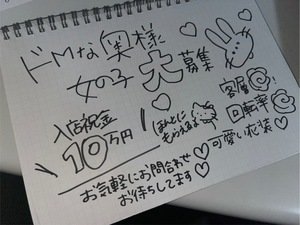 ドMな奥様
女の子大募集
入店祝金
10万円!
ほんとに
もらえるよ
客層
回転率
可愛い衣装
お気軽にお問合わせ
お待ちしてます